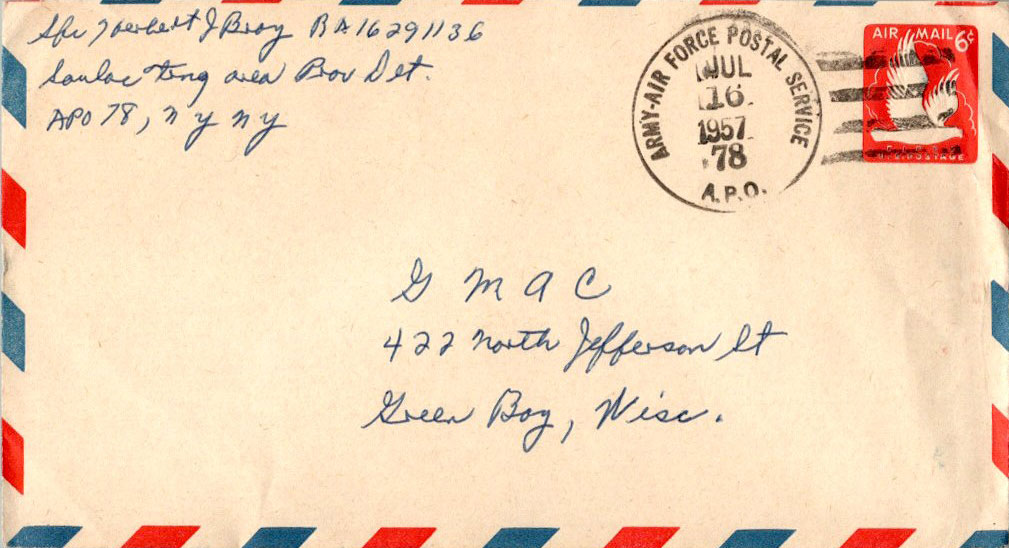 Sfc Herbert J Bray RA 16291136
Saulac Tng area Prov Det.
APO 78, N Y N Y
ARMY-AIR FORCE POSTAL SERVICE
JUL
16
1957
78
A.P.O.
AIR MAIL 6¢
U.S. POSTAGE
G M A C
422 North Jefferson St
Green Bay, Wisc.